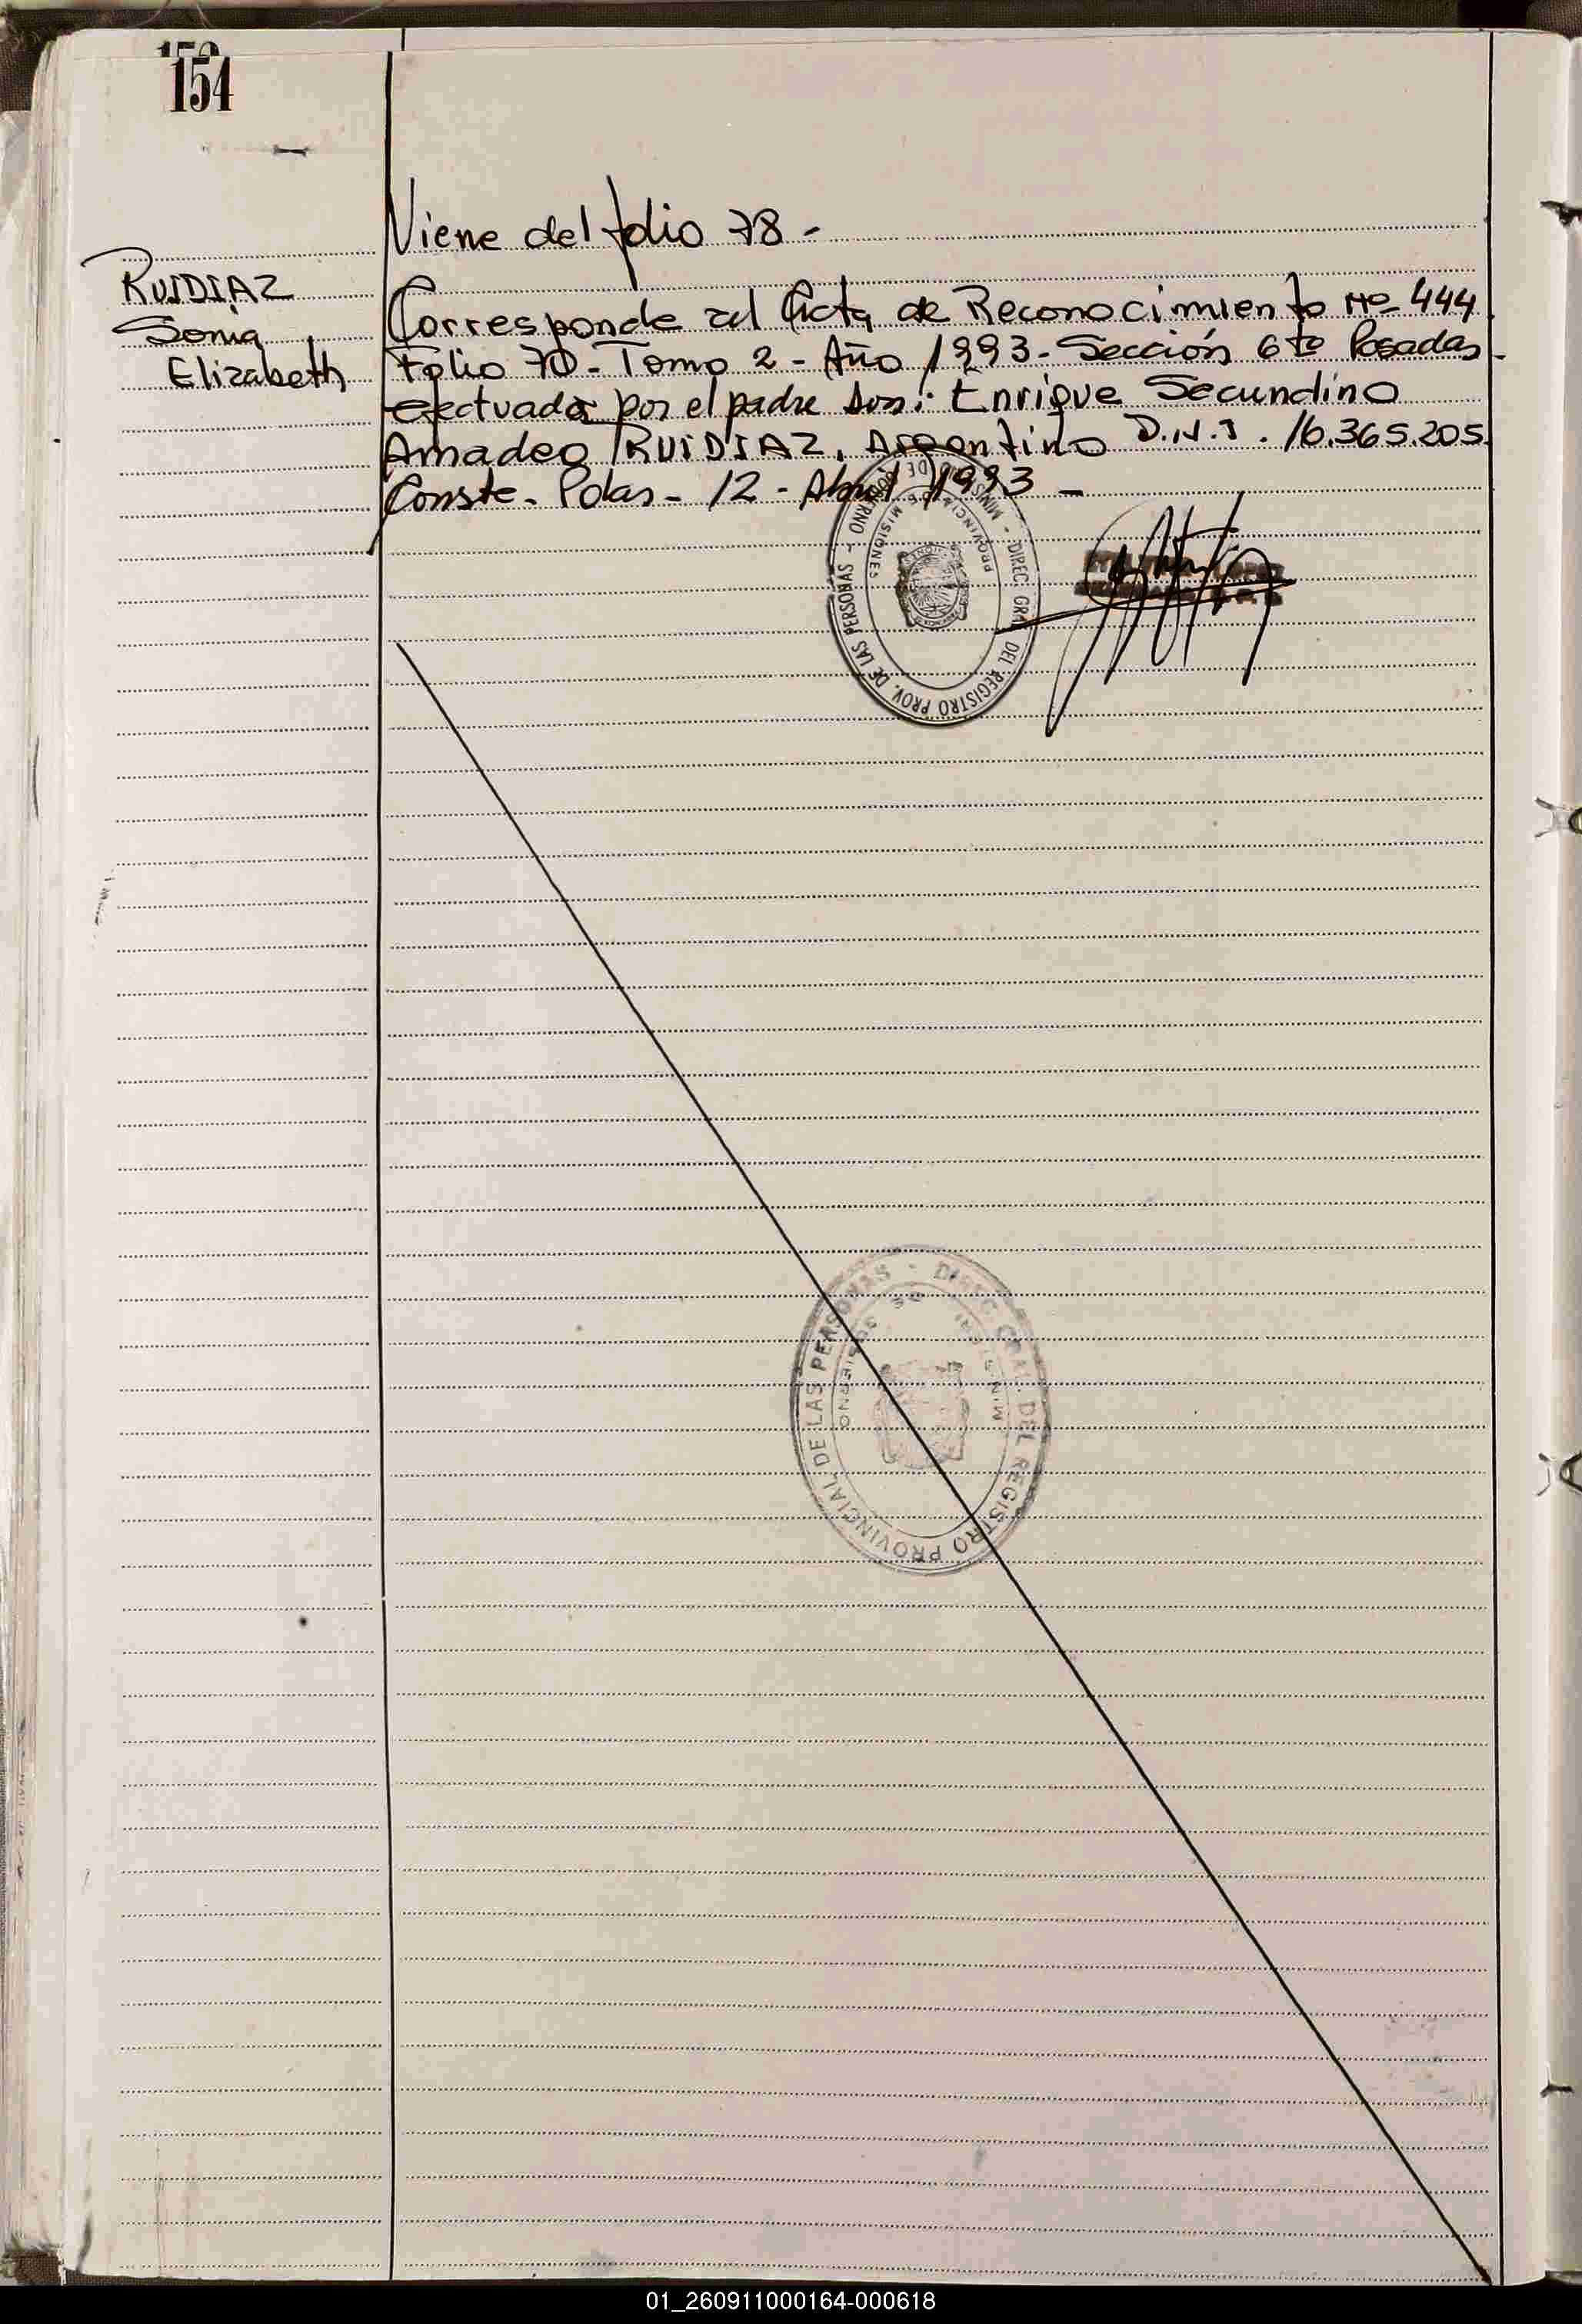 154
Viene del folio 78 -
RUIDIAZ
Sonia
Elizabeth
Corresponde al Acta de Reconocimiento Nº 444
Folio 70 - Tomo 2 - Año 1993 - Sección 6ta Posadas -
efectuada por el padre don: Enrique Secundino
Amadeo RUIDIAZ, Argentino D.N.I. 16.365.205.
Conste - Pdas - 12 - Abril 1993 -
MINIST. DE GOBIERNO - DIREC. GRAL. DEL REGISTRO PROV. DE LAS PERSONAS
PROVINCIA DE MISIONES
DIREC. GRAL. DEL REGISTRO PROVINCIAL DE LAS PERSONAS
MINISTERIO DE GOBIERNO
01_260911000164-000618